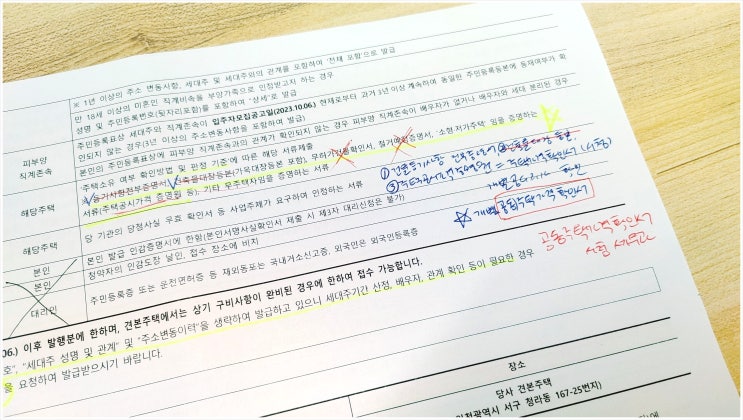 ※ 1년 이상의 주소 변동사항, 세대주 및 세대주와의 관계를 포함하여 '전체 포함'으로 발급
만 18세 이상의 미혼인 직계비속을 부양가족으로 인정받고자 하는 경우
성명 및 주민등록번호(뒷자리포함)를 포함하여 '상세'로 발급
주민등록표상 세대주와 직계존속이 입주자모집공고일(2023.10.06.) 현재로부터 과거 3년 이상 계속하여 동일한 주민등록등본에 등재여부가 확
인되지 않는 경우(3년 이상의 주소변동사항을 포함하여 발급)
피부양
직계존속
본인의 주민등록표상에 피부양 직계존속과의 관계가 확인되지 않는 경우 피부양 직계존속이 배우자가 없거나 배우자와 세대 분리된 경우
주택소유 여부 확인방법 및 판정 기준'에 따른 해당 서류제출
해당주택
등기사항전부증명서 건축물대장등본(가옥대장등본 포함), 무허가건물확인서, 철거예정증명서, '소형·저가주택' 임을 증명하는
서류(주택공시가격 증명원 등), 기타 무주택자임을 증명하는 서류
① 건물등기사항 전부증명서
② 개별공동주택가격확인서
공동주택가격확인서
해당주택
당 기관의 당첨사실 무효 확인서 등 사업주체가 요구하여 인정하는 서류
본인
본인 발급 인감증명서에 한함(본인서명사실확인서 제출 시 제3자 대리신청은 불가)
본인
청약자의 인감도장 날인, 접수 장소에 비치
대리인
주민등록증 또는 운전면허증 등 재외동포는 국내거소신고증, 외국인은 외국인등록증
06.) 이후 발행분에 한하며, 견본주택에서는 상기 구비사항이 완비된 경우에 한하여 접수 가능합니다.
호", "세대주 성명 및 관계" 및 "주소변동이력"을 생략하여 발급하고 있으니 세대주기간 산정, 배우자, 관계 확인 등이 필요한 경우
을 요청하여 발급받으시기 바랍니다.
장소
당사 견본주택
인천광역시 서구 청라동 167-25번지)